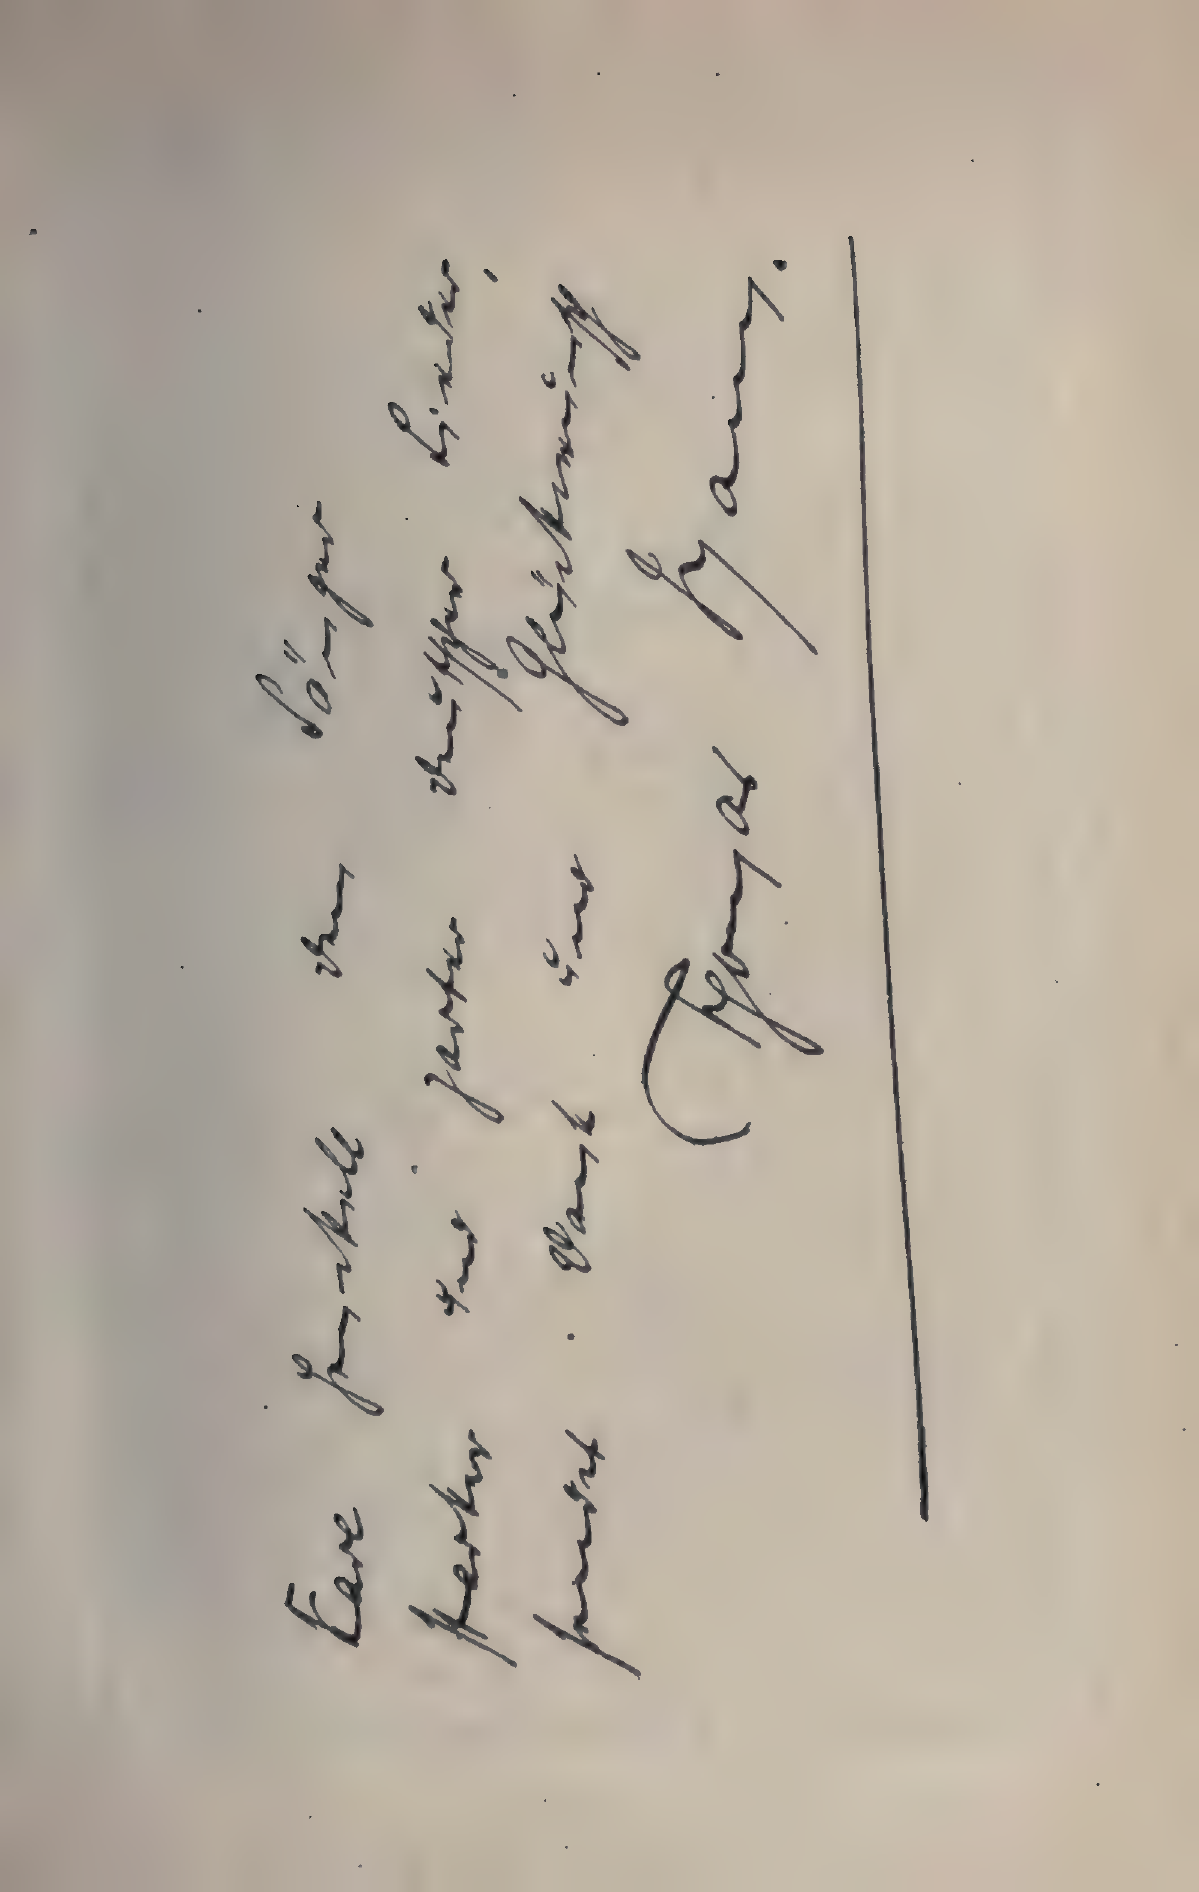 Karl Henckell dem Sänger
starker und zarter deutscher Lieder,
sendet Dank und Glückwunsch
Thomas Mann.